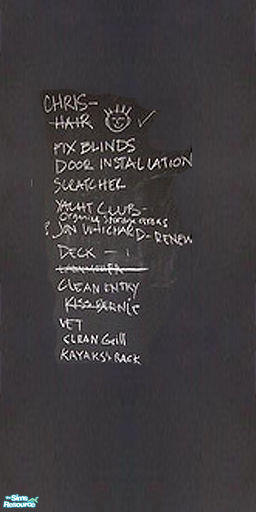 CHRIS-
HAIR ✓
FIX BLINDS
DOOR INSTALLATION
SCRATCHER
YACHT CLUB-
Organize Storage areas
? JON WHICHARD-RENEW
DECK -
CLEAN ENTRY
KISS BERNIE
VET
CLEAN Grill
KAYAKS RACK
the Sims Resource